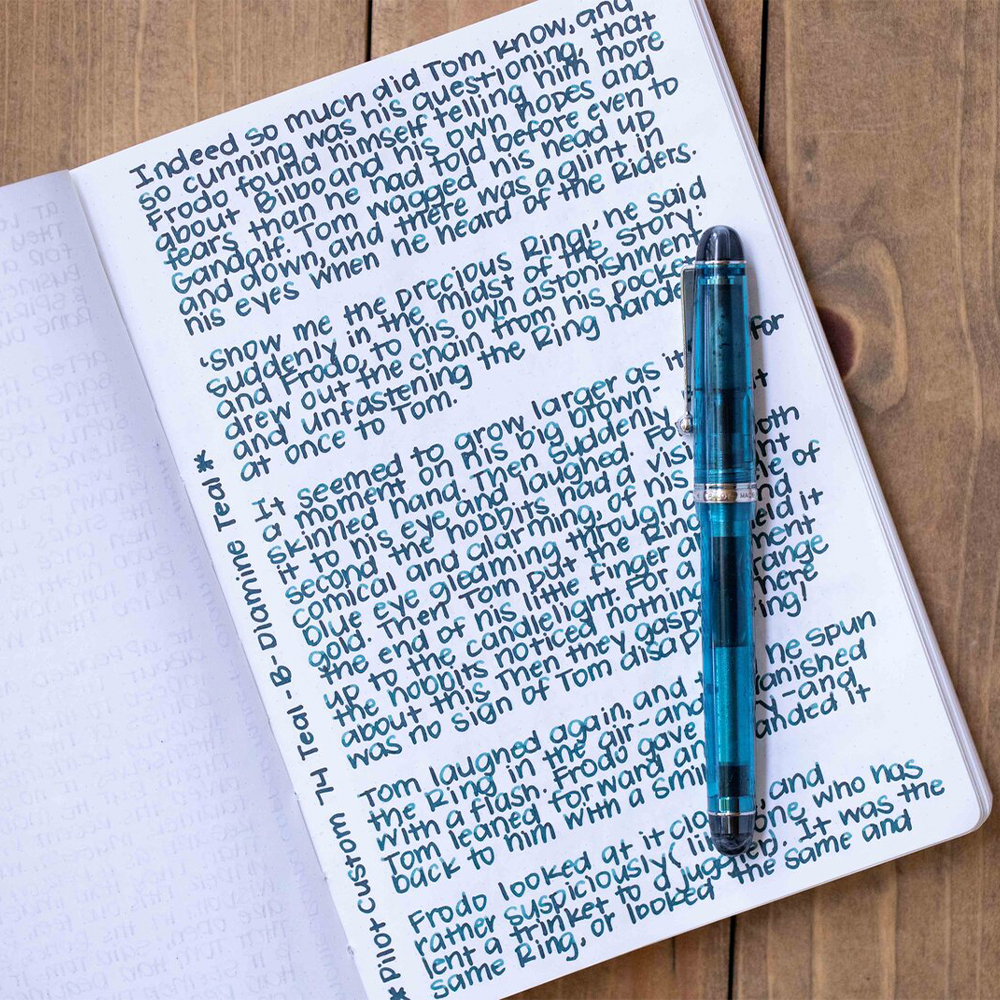 Indeed so much did Tom know, and
so cunning was his questioning, that
Frodo found himself telling him more
about Bilbo and his own hopes and
fears than he had told before even to
Gandalf. Tom wagged his head up
and down, and there was a glint in
his eyes when he heard of the Riders.
'Show me the precious Ring!' he said
suddenly in the midst of the story:
and Frodo, to his own astonishment,
drew out the chain from his pocket
and unfastening the Ring
at once to Tom.
It seemed to grow larger as it for
a moment on his big brown-
skinned hand. Then suddenly
it to his eye and laughed. For
second the hobbits had a
comical and alarming, of his
blue eye gleaming through of
gold. Then Tom put the Ring
the end of his little finger it
up to the candlelight. For a
the hobbits noticed nothing
about this. Then they
was no sign of Tom
Tom laughed again, and he spun
the Ring in the air-and
with a flash. Frodo gave -and
Tom leaned forward and it
back to him with a
Frodo looked at it and
rather suspiciously( one who has
lent a trinket to a juggler). It was the
same Ring, or looked the same and
* Pilot Custom 74 Teal - B - Diamine Teal *